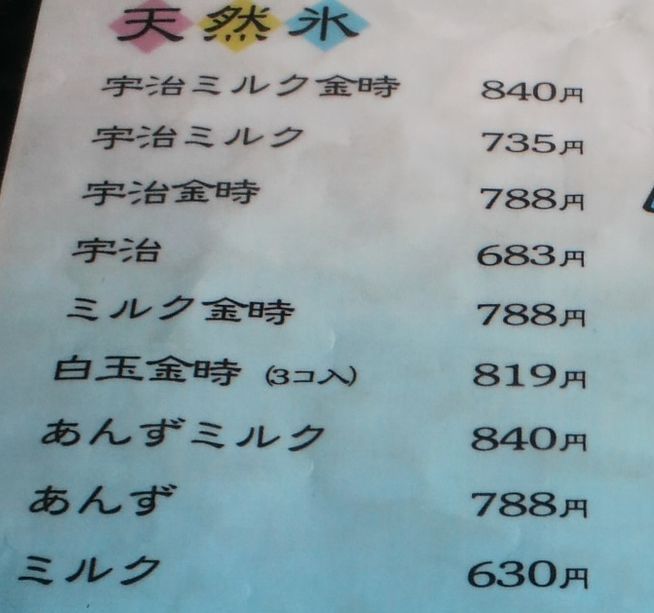 天然氷
宇治ミルク金時 840円
宇治ミルク 735円
宇治金時 788円
宇治 683円
ミルク金時 788円
白玉金時 (3コ入) 819円
あんずミルク 840円
あんず 788円
ミルク 630円